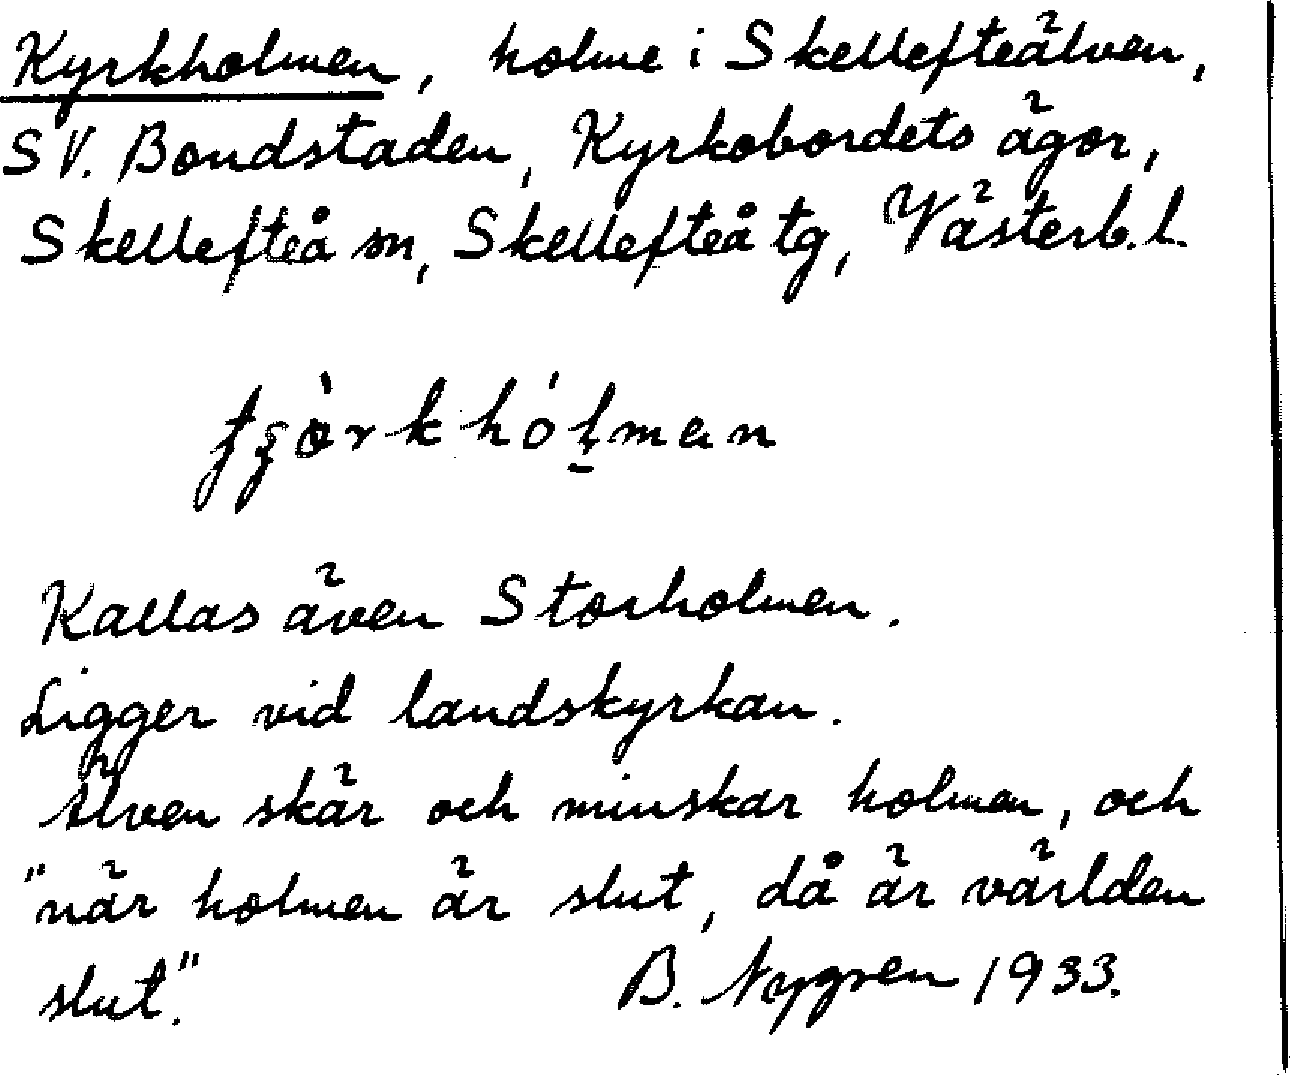 Kyrkholmen, holme i Skellefteälven,
SV. Bondstaden, Kyrkobordets ägor,
Skellefteå sn, Skellefteå tg, Västerb.l.
Kallas även Storholmen.
Ligger vid landskyrkan.
Älven skär och minskar holmen, och
"när holmen är slut, då är världen
slut."
B. Nygren 1933.